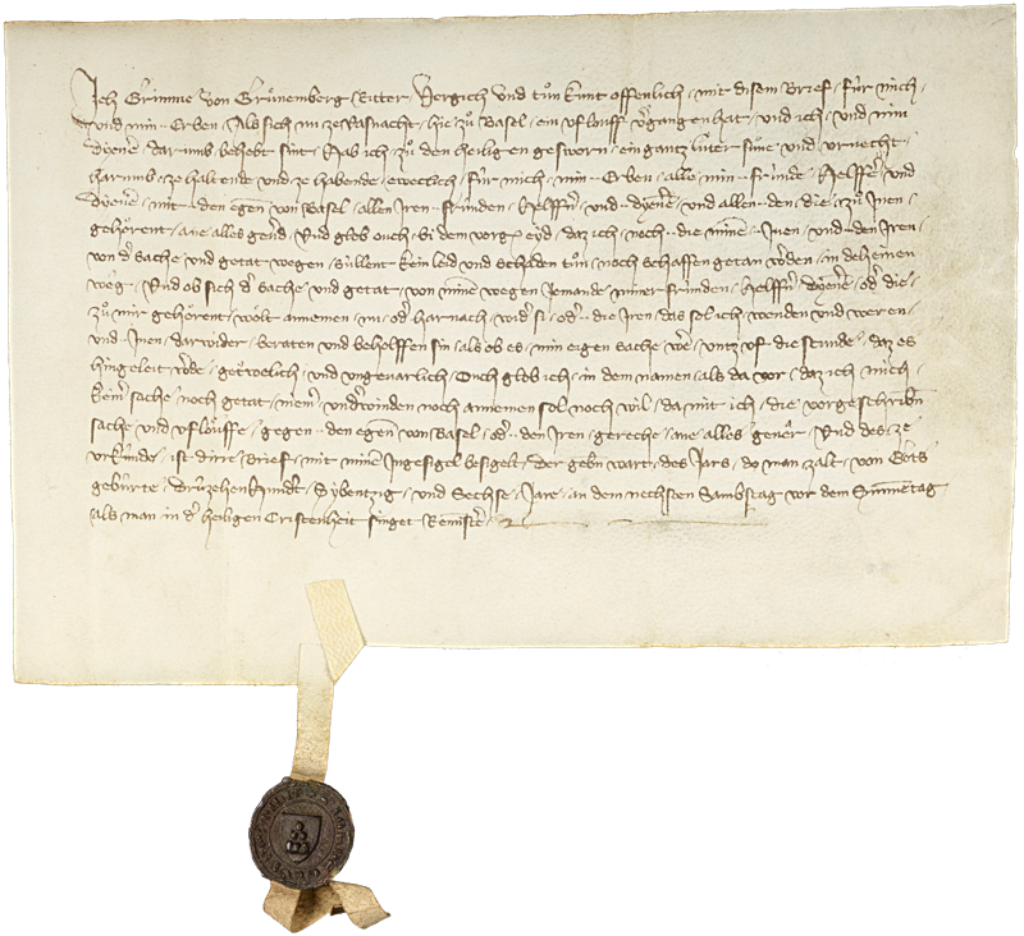 Ich Grimme von Grünemberg Ritter, Vergich und tůn kunt offenlich, mit disem Brief, für mich,
und min Erben, Als sich nu ze Vasnacht, hie, zů Basel, ein uflouff v̓gangen hat, und ich, und min
Dyen̄e, darumb, behebt sint, Hab ich, zů den heiligen gesworn, ein gantz luter sůne, und urvecht,
harumb, ze haltende und ze habende, eweclich, für mich, min Erben, alle min fründe, Helffe̓, und
Dyen̄e, mit den egen̄ von Basel, allen Iren fründen, Helffn̓, und dyen̄e, und allen den, die, zů Inen,
gehörent, ane alles gev̓d, Und glob ouch, bi dem vorg eyd, daz ich, noch die min̄e, Inen, und den Iren,
von d̓ sache und getat wegen, süllent kein leid und schaden tůn, noch schaffen getan w̓den, in deheinen
weg, Und ob sich d̓ sache und getat, von min̄e wegen Iemande, miner fründen, Helffn̓, Dyen̄e, od̓ die,
zů mir gehörent, wolt annemen, nu, od̓ harnach, wid̓ si, od̓ die Iren, das sol ich, wenden und weren,
und Inen, darwider, beraten und beholffen sin, als ob es, min eigen sache, we̓, untz uf die stunde, daz es
hingeleit w̓de, getruwelich, und ungevarlich, Ouch glob ich, in dem namen, als da vor, daz ich mich,
keine̓ sache, noch getat, niem̓, und̓winden noch annemen sol noch wil, da mit ich, die vorgeschribn̄
sache und uflöuffe, gegen den egen̄ von Basel, od̓ den Iren, gereche, ane alles geve̓r, Und des, ze
urkünde, ist dirre Brief, mit min̄e Ingesigel besigelt, Der gebn̄ wart, des Jars, do man zalt, von Gots
gebürte, Drüzehen Hund̓t, Sybentzig, und Sechse, Jare, an dem nechsten Sambstag vor dem Sunnētag
als man in d̓ heiligen Cristenheit singet Reminisce̓